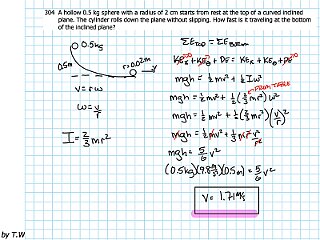 304 A hollow 0.5 kg sphere with a radius of 2 cm starts from rest at the top of a curved inclined
plane. The cylinder rolls down the plane without slipping. How fast is it traveling at the bottom
of the inclined plane?
0.5kg
0.5m
r=0.02m
V
V = rω
ω = v/r
I = 2/3 mr²
ΣE TOP = ΣE BOTTOM
mgh = ½mv² + ½Iω²
FROM TABLE
mgh = ½mv² + ½(⅔mr²)ω²
mgh = ½mv² + ½(⅔mr²)(v/r)²
mgh = ½mv² + ⅓mr² v²/r²
mgh = 5/6 v²
(0.5kg)(9.8m/s²)(0.5m) = 5/6 v²
V = 1.71 m/s
by T.W